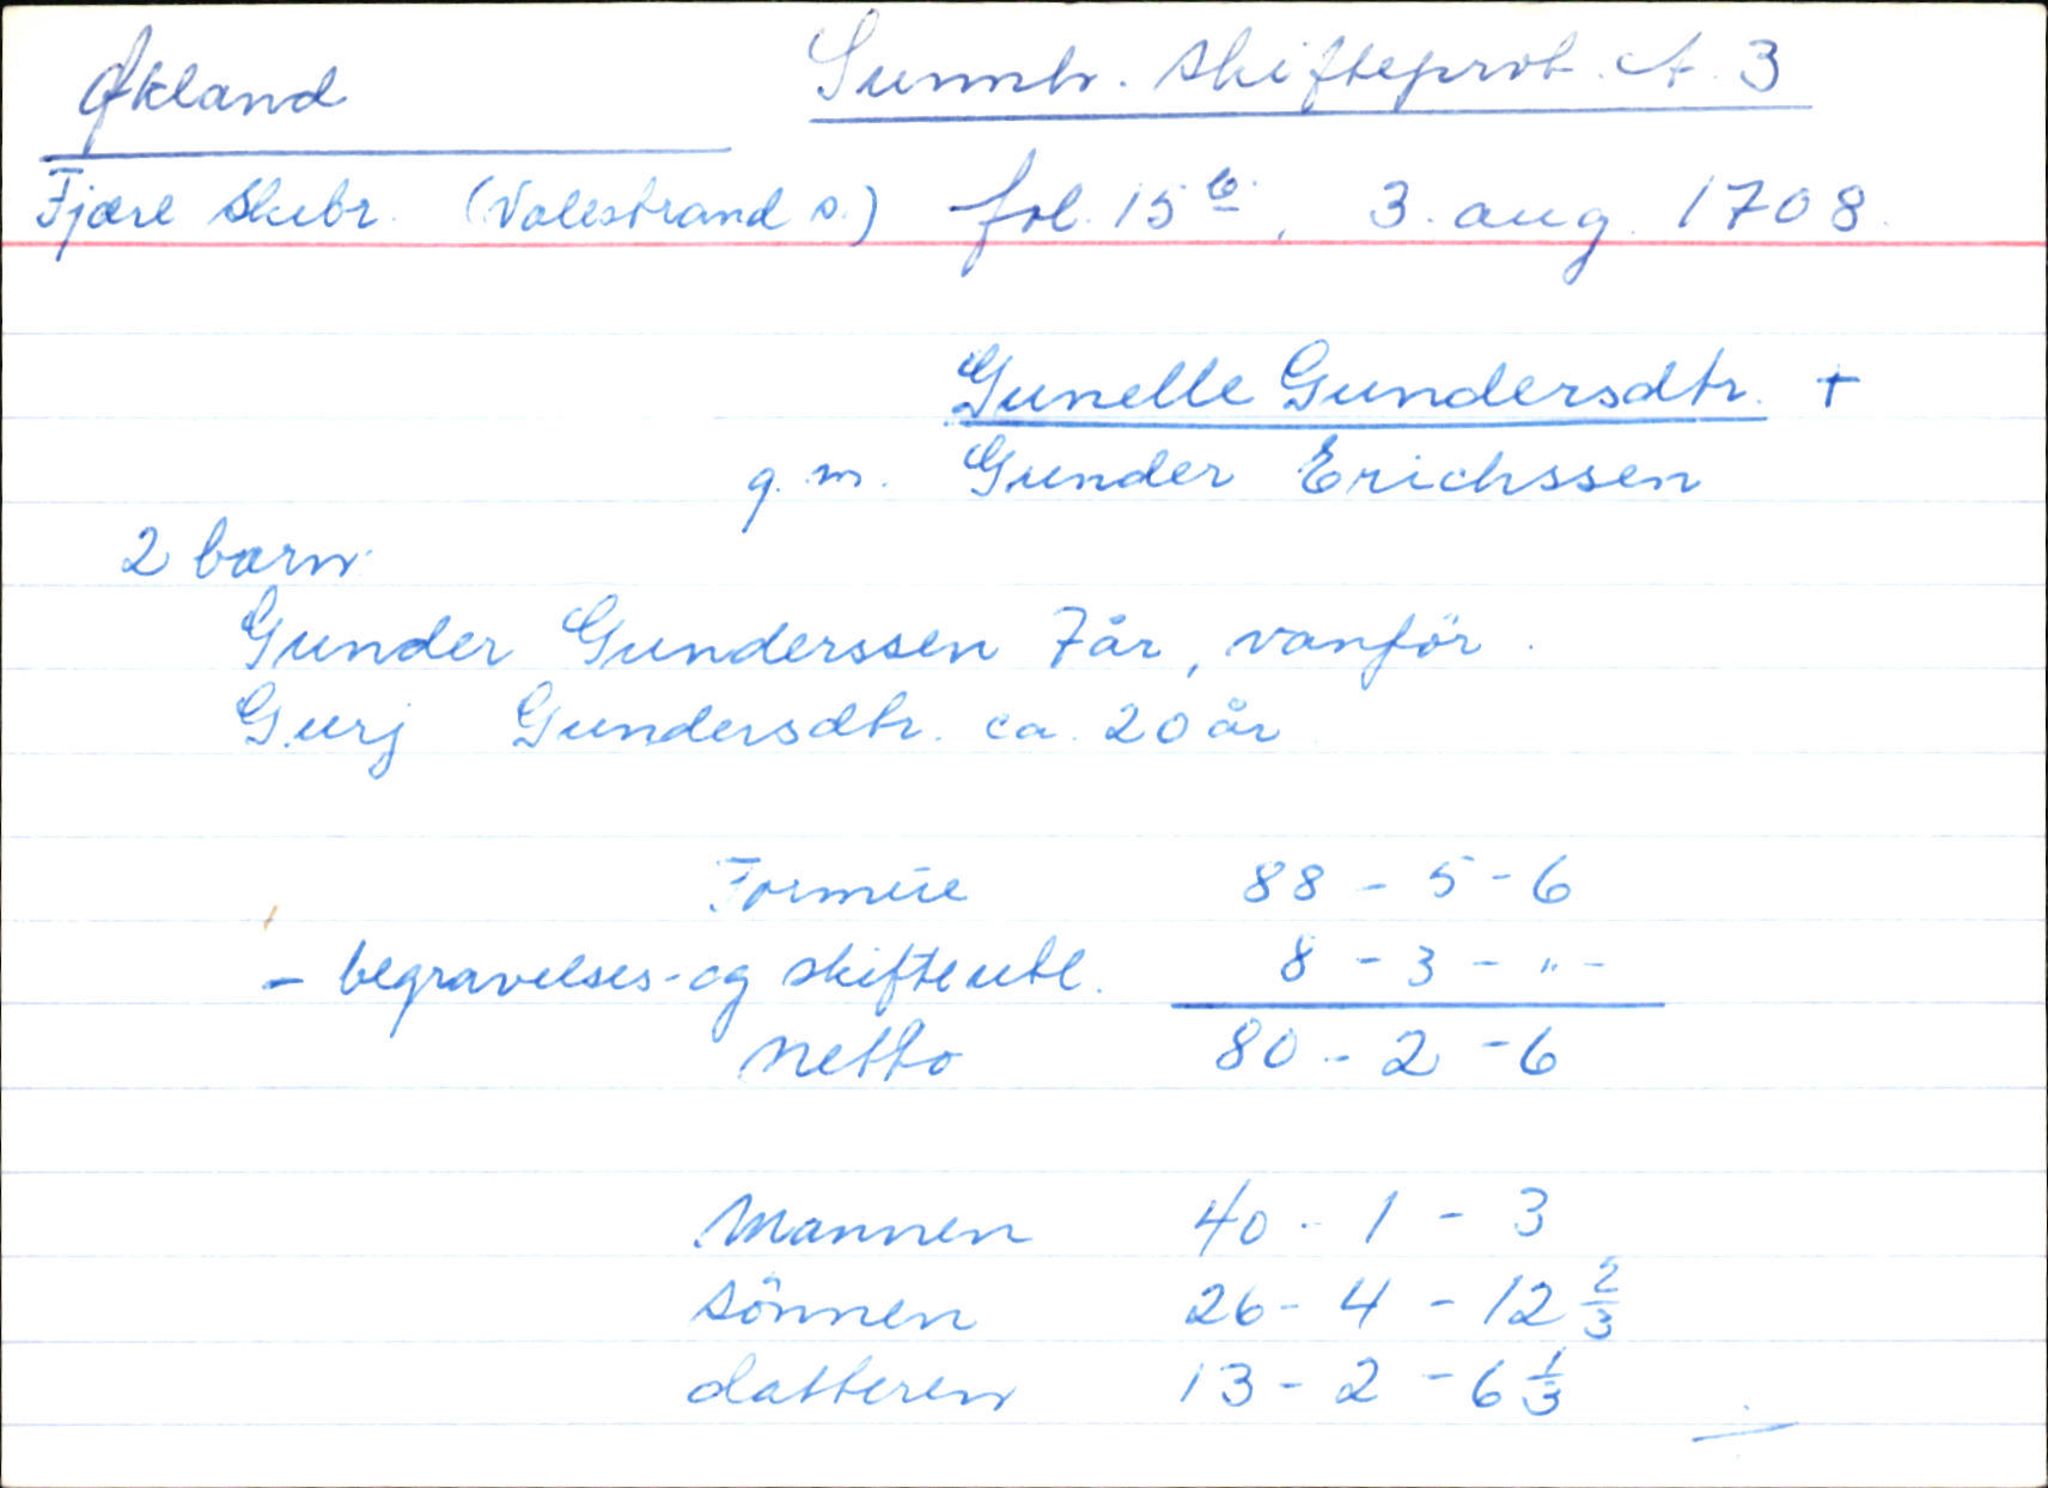 Økland
Sunnh. skifteprot. A. 3
Fjære Skibr. (Valestrand s.) fol. 15 b., 3. aug. 1708.
Gunelle Gundersdtr. +
g. m. Gunder Erichssen
2 barn
Gunder Gunderssen 7 år, vanför.
Gurj Gundersdtr. ca. 20 år
Formue 88 - 5 - 6
- begravelses- og skifteutl. 8 - 3 - " -
netto 80 - 2 - 6
Mannen 40 - 1 - 3
sönnen 26 - 4 - 12 2/3
datteren 13 - 2 - 6 1/3